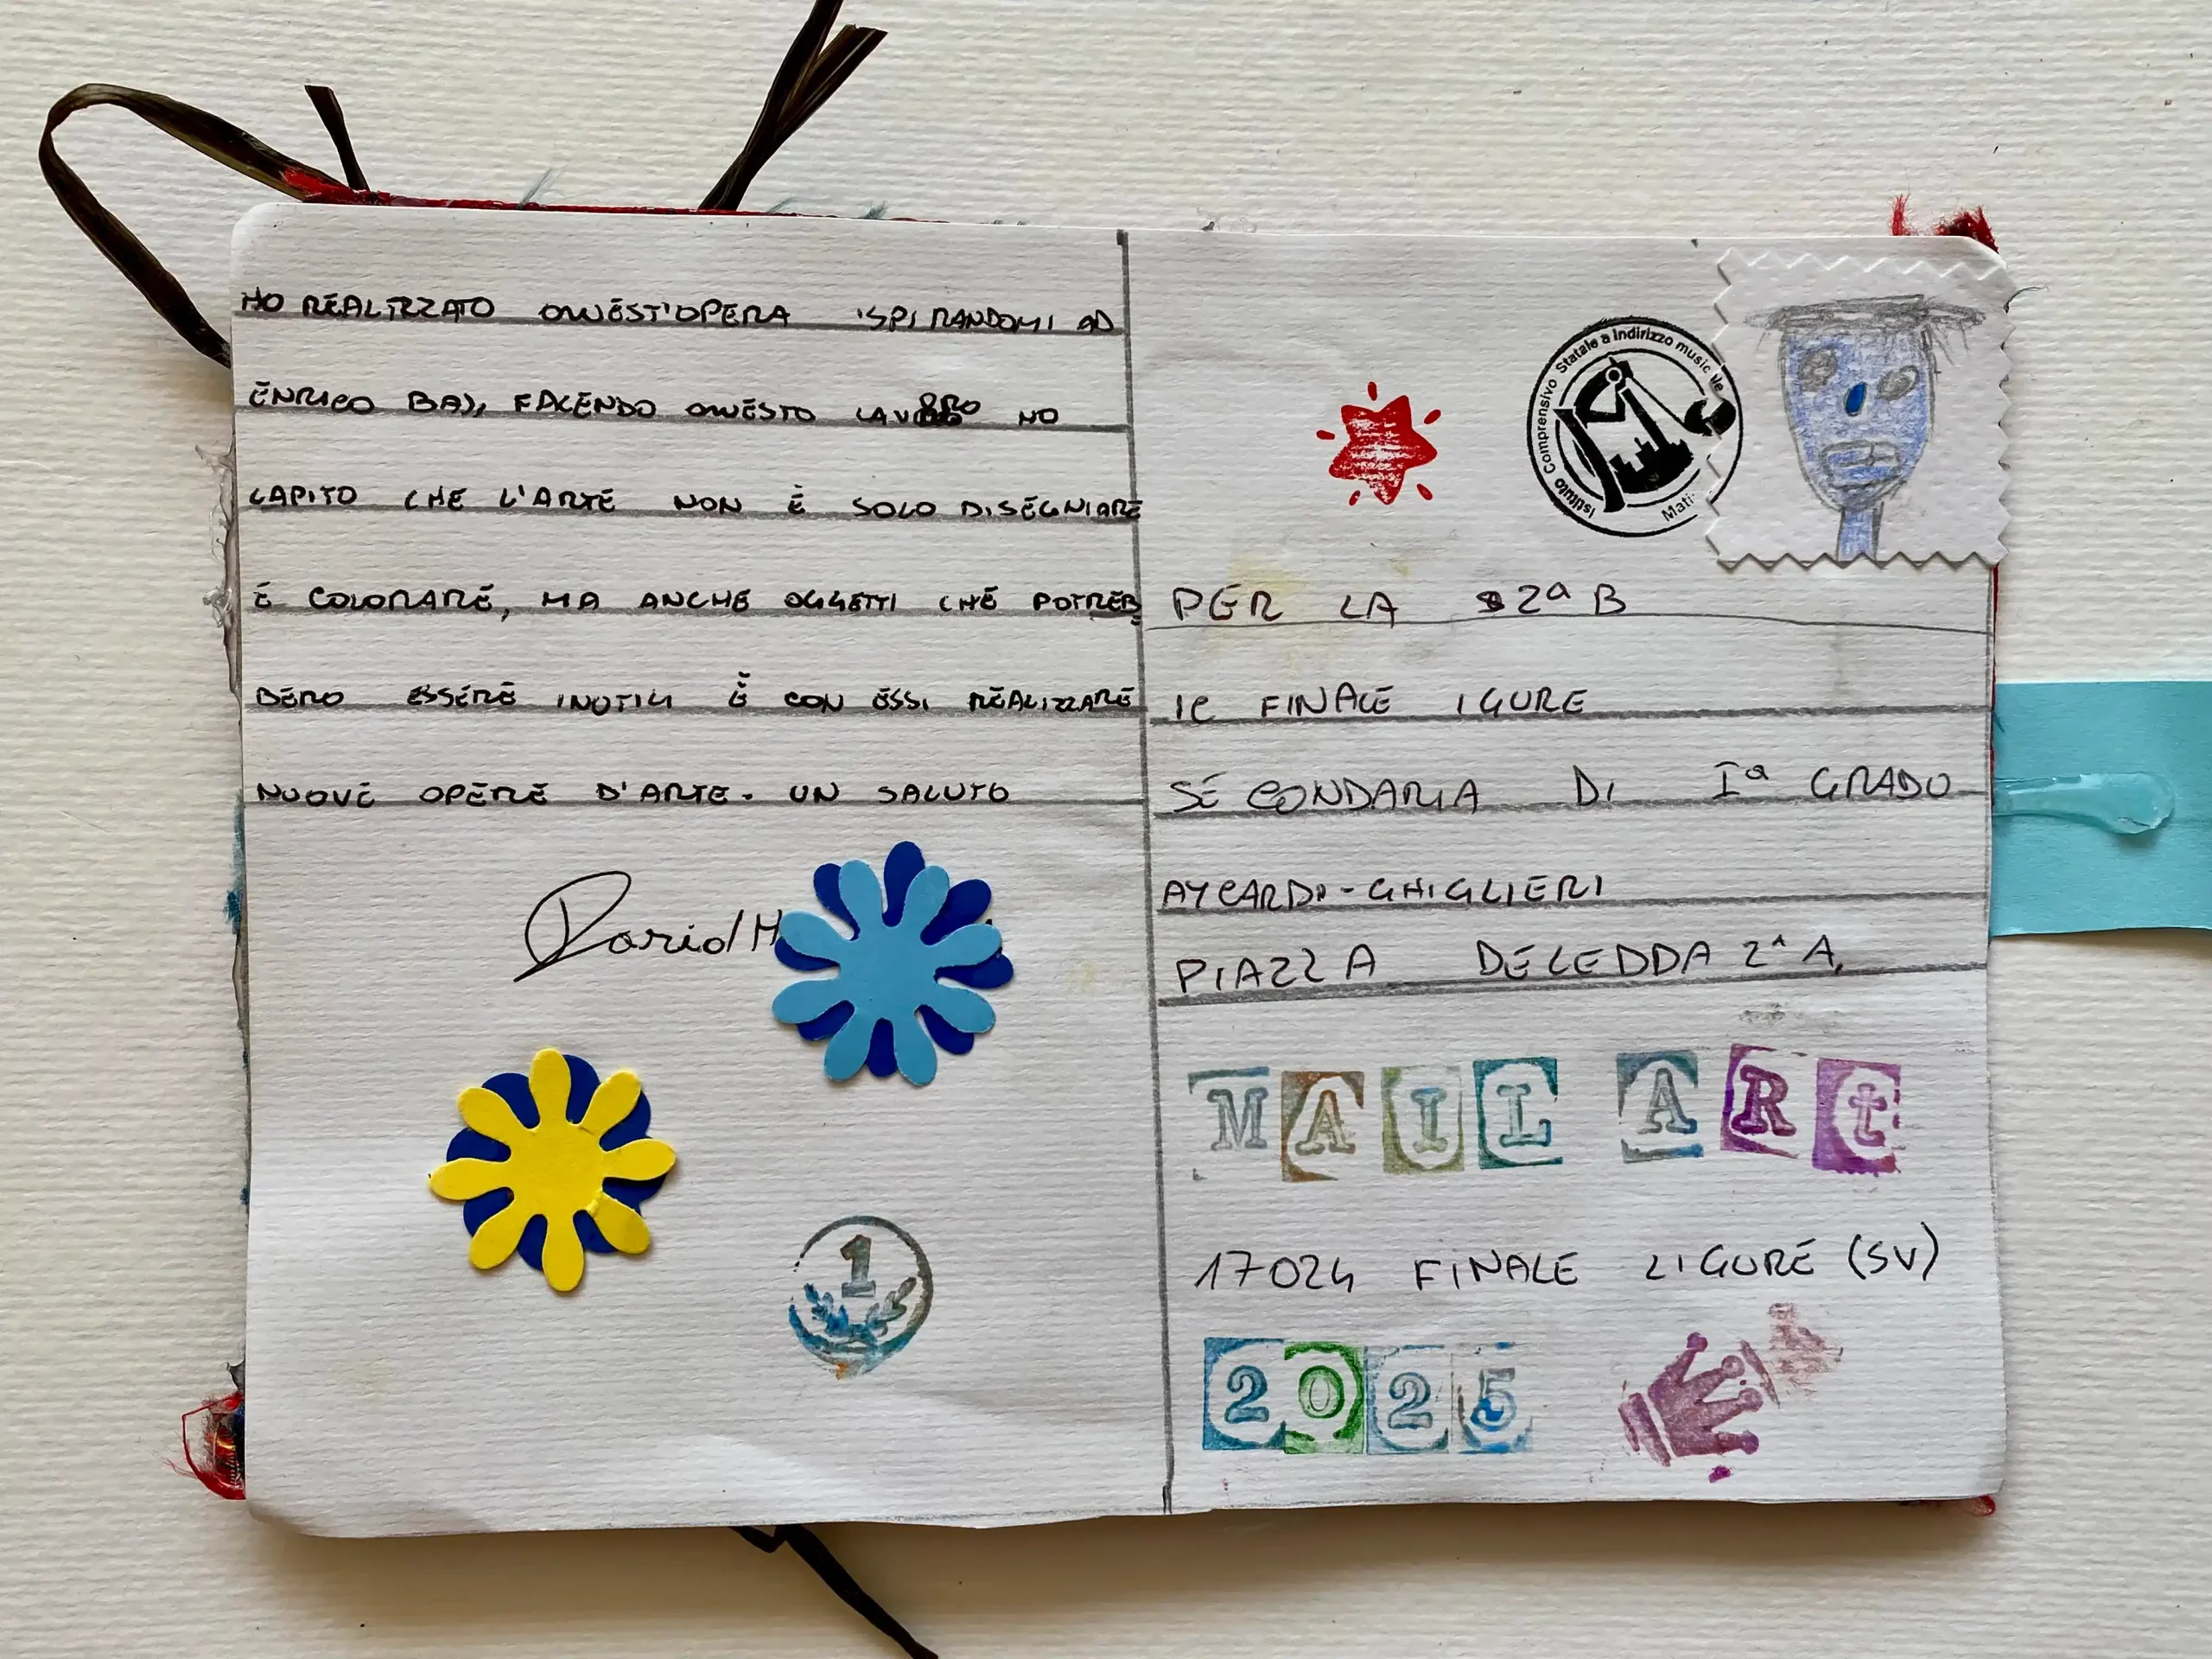 HO REALIZZATO QUEST'OPERA ISPIRANDOMI AD
ENRICO BAJ, FACENDO QUESTO LAVORO HO
CAPITO CHE L'ARTE NON È SOLO DISEGNIARE
E COLORARE, MA ANCHE OGGETTI CHE POTREB
BERO ESSERE INUTILI E CON ESSI REALIZZARE
NUOVE OPERE D'ARTE. UN SALUTO
David H
1
Istituto Comprensivo Statale a Indirizzo musicale
PER LA 2ª B
IC FINALE IGURE
SECONDARIA DI Iª GRADO
AYCARDI-GHIGLIERI
PIAZZA DELEDDA 2^A,
MAIL ARt
17024 FINALE LIGURE (SV)
2025